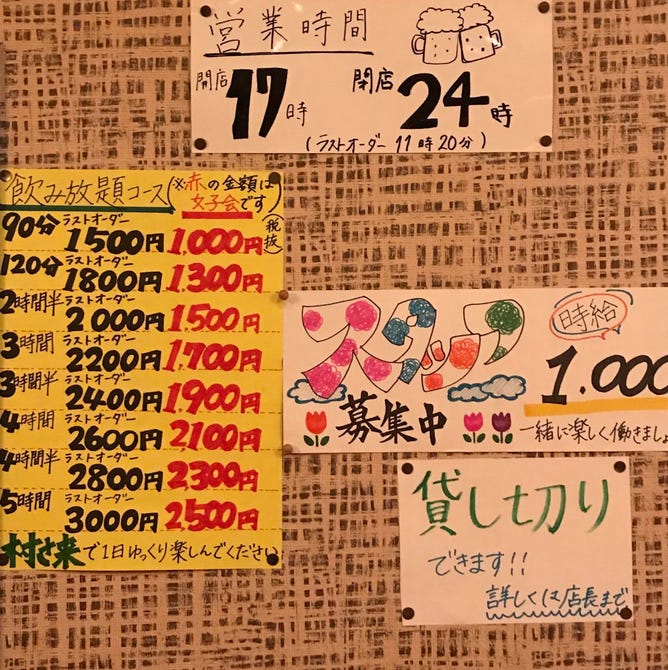 営業時間
開店 17時 閉店 24時
(ラストオーダー 11時20分)
飲み放題コース(※赤の金額は
女子会です)
90分 ラストオーダー 1500円 1,000円 (税抜)
120分 ラストオーダー 1800円 1,300円
2時間半 ラストオーダー 2000円 1,500円
3時間 ラストオーダー 2200円 1,700円
3時間半 ラストオーダー 2400円 1,900円
4時間 ラストオーダー 2600円 2,100円
4時間半 ラストオーダー 2800円 2300円
5時間 ラストオーダー 3000円 2,500円
村さ来で1日ゆっくり楽しんでください
スタッフ
募集中
時給
1.000
一緒に楽しく働きましょ
貸し切り
できます!!
詳しくは店長まで